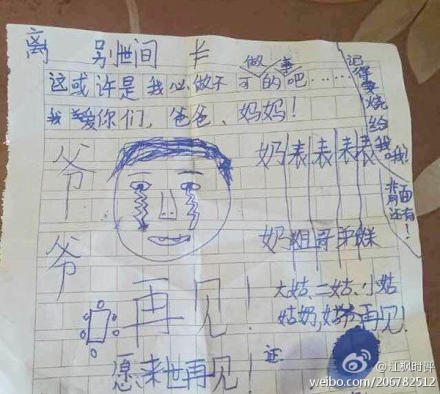 离别世间卡
做事
这或许是我必做不可的吧……
我爱你们,爸爸、妈妈!
记得要烧给我哦!
背面还有!
爷爷
奶奶
表姐
表哥
表弟
表妹
大姑、二姑、小姑
姑奶,再见!
再见!
证
愿来世再见!
@江枫时评
weibo.com/206782512